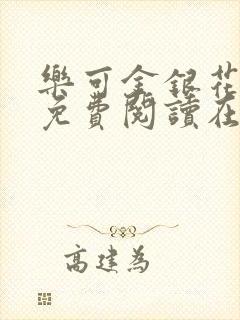 樂可金銀花
免費閱讀在
高建為